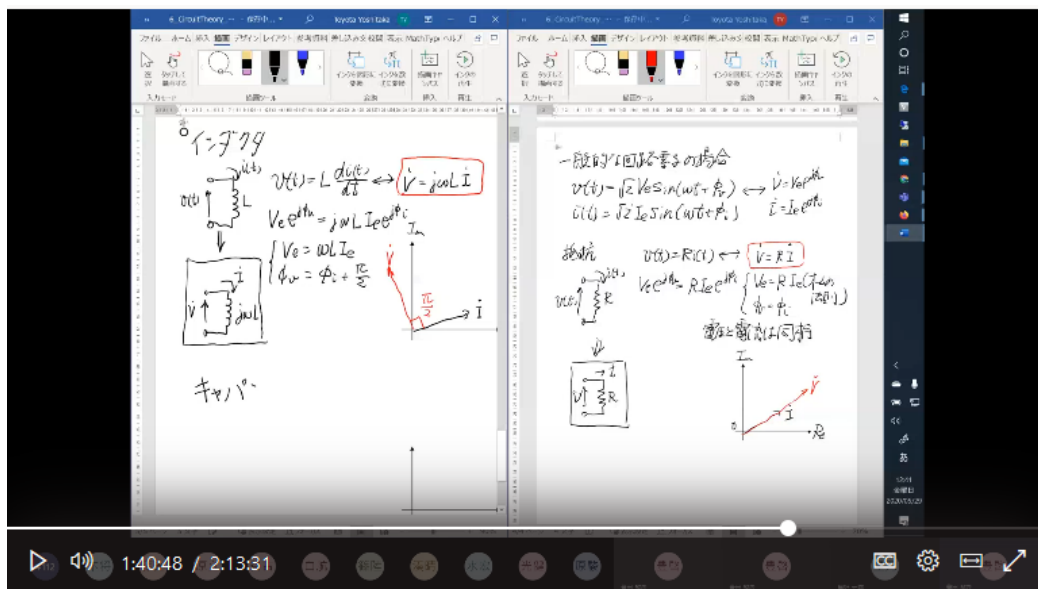 6_CircuitTheory_… - 保存中…
Toyota Yoshitaka
TY
ファイル ホーム 挿入 描画 デザイン レイアウト 参考資料 差し込み文書 校閲 表示 MathType ヘルプ
描画ツール
変換
挿入
再生
インダクタ
i(t)
v(t)
L
v(t) = L di(t)/dt ↔ V̇ = jωL İ
Ve e^{jφv} = jωL Ie e^{jφi}
Ve = ωL Ie
φv = φi + π/2
İ
V̇
jωL
Im
V̇
π/2
İ
キャパ
6_CircuitTheory_… - 保存中…
Toyota Yoshitaka
TY
ファイル ホーム 挿入 描画 デザイン レイアウト 参考資料 差し込み 文書 校閲 表示 MathType ヘルプ
描画ツール
変換
挿入
再生
一般的な回路素子の場合
v(t) = √2 Ve sin(ωt + φv) ↔ V̇ = Ve e^{jφv}
i(t) = √2 Ie sin(ωt + φi) İ = Ie e^{jφi}
抵抗
v(t) = Ri(t) ↔ V̇ = R İ
i(t)
v(t)
R
Ve e^{jφv} = R Ie e^{jφi}
Ve = R Ie
φv = φi
電圧と電流は同相
İ
V
R
Im
V̇
İ
0
Re
あ
金曜日
2020/05/29
1:40:48 / 2:13:31
CC